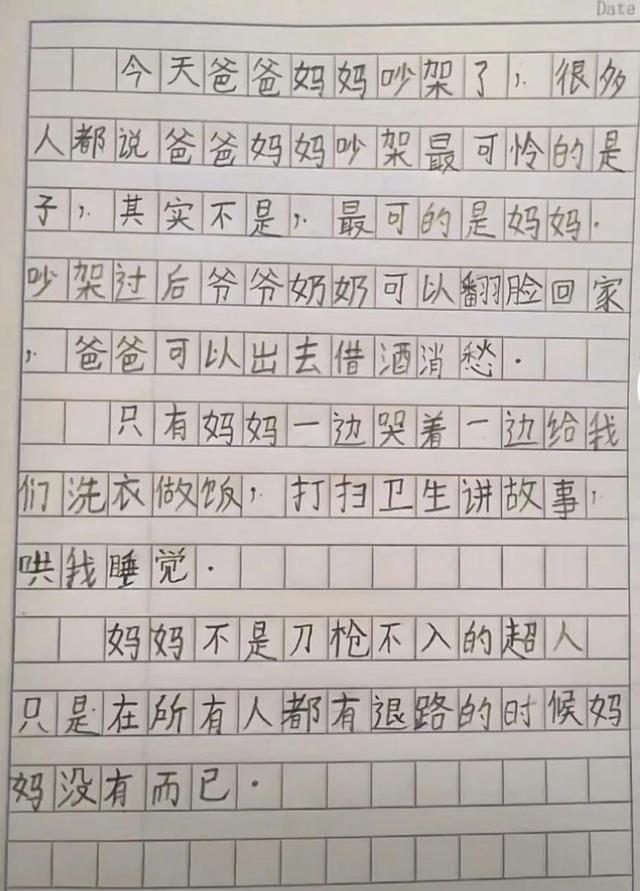 Date
今天爸爸妈妈吵架了，很多
人都说爸爸妈妈吵架最可怜的是
子，其实不是，最可的是妈妈.
吵架过后爷爷奶奶可以翻脸回家
，爸爸可以出去借酒消愁.
只有妈妈一边哭着一边给我
们洗衣做饭，打扫卫生讲故事，
哄我睡觉.
妈妈不是刀枪不入的超人
只是在所有人都有退路的时候妈
妈没有而已.